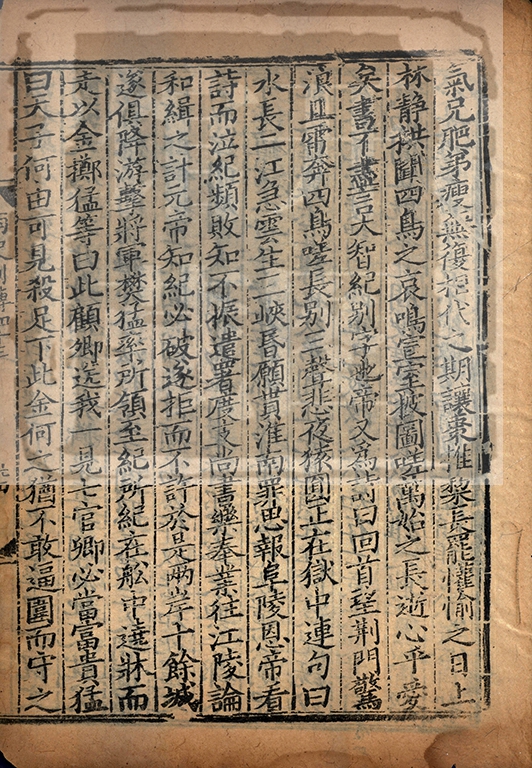 氣兄肥弟瘦無復相代之期讓棗推梨長罷懽愉之日上
林静拱聞四鳥之哀鳴宣室披圖嗟萬始之長逝心乎愛
矣書不盡言大智紀別字也帝又為詩曰回首望荆門驚
浪且雷奔四鳥嗟長别三聲悲夜猿圓正在獄中連句曰
水長二江急雲生三峽昏願貰淮南罪思報阜陵恩帝看
詩而泣紀頻敗知不振遣署度支尚書樂奉業往江陵論
和緝之計元帝知紀必破遂拒而不許於是兩岸十餘城
遂俱降游擊將軍樊猛率所領至紀所紀在舩中遶牀而
走以金擲猛等曰此顧卿送我一見七官卿必當富貴猛
曰天子何由可見殺足下此金何之猶不敢逼圍而守之